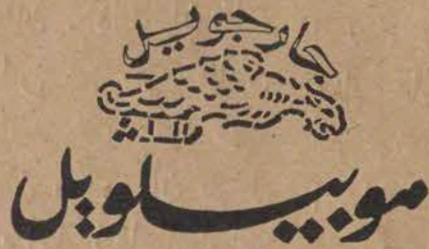 جارجويل
موبيلويل